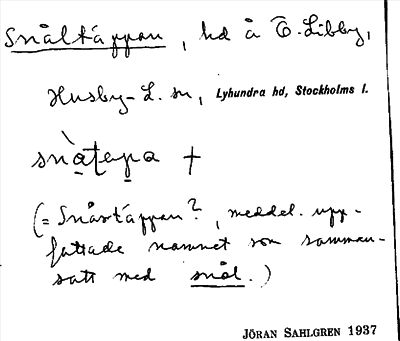 Snåltäppan, hd å Ö. Libby,
Husby-L. sn, Lyhundra hd, Stockholms l.
snàṭepa †
(= Snårtäppan?, meddel. upp-
fattade namnet som samman-
satt med snål.)
JÖRAN SAHLGREN 1937